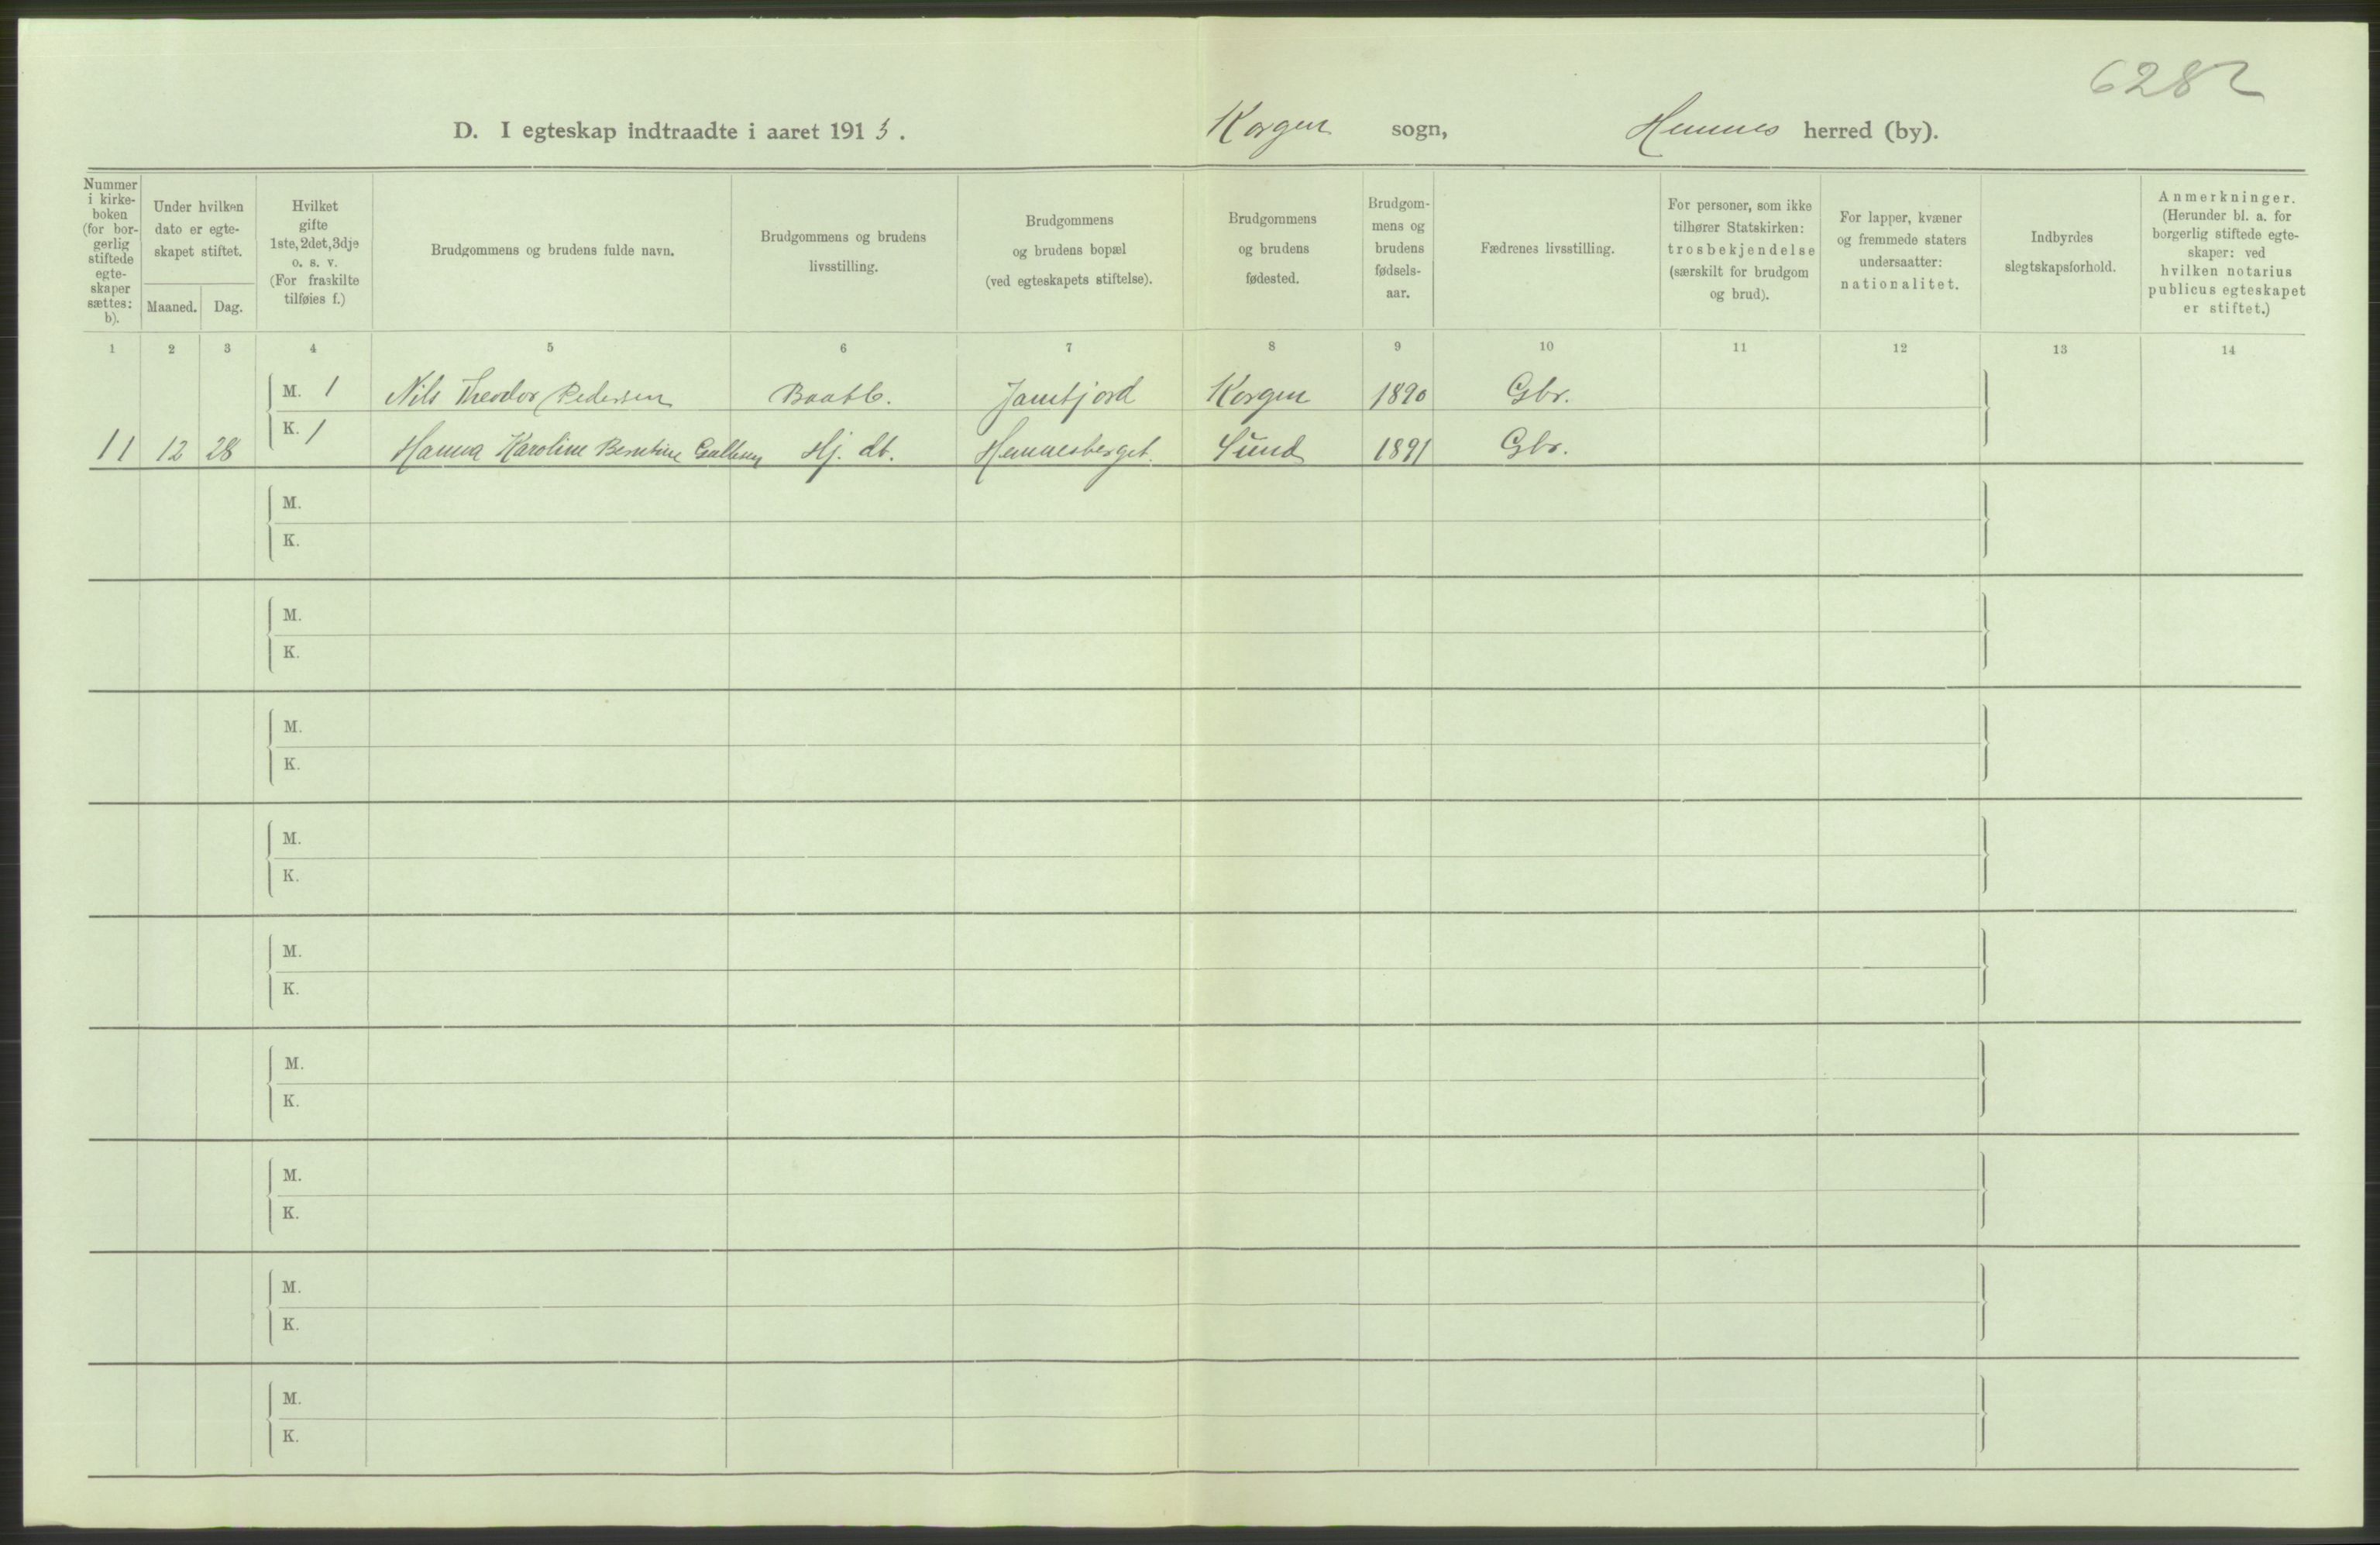 6282
D. I egteskap indtraadte i aaret 1913. Korgen sogn, Hemnes herred (by).
Nummer i kirke-boken (for bor-gerlig stiftede egte-skaper sættes: b).
Under hvilken dato er egte-skapet stiftet.
Maaned. Dag.
Hvilket gifte 1ste, 2det, 3dje o. s. v. (For fraskilte tilføies f.)
Brudgommens og brudens fulde navn.
Brudgommens og brudens livsstilling.
Brudgommens og brudens bopæl (ved egteskapets stiftelse).
Brudgommens og brudens fødested.
Brudgom-mens og brudens fødsels-aar.
Fædrenes livsstilling.
For personer, som ikke tilhører Statskirken: trosbekjendelse (særskilt for brudgom og brud).
For lapper, kvæner og fremmede staters undersaatter: nationalitet.
Indbyrdes slegtskapsforhold.
Anmerkninger. (Herunder bl. a. for borgerlig stiftede egte-skaper: ved hvilken notarius publicus egteskapet er stiftet.)
1 2 3 4 5 6 7 8 9 10 11 12 13 14
M. 1 Nils Theodor Pedersen Baatb. Jamtfjord Korgen 1890 Gbr.
11 12 28 K. 1 Hanna Karoline Berntine Hj. dt. Hemnesberget Sund 1891 Gbr.
M.
K.
M.
K.
M.
K.
M.
K.
M.
K.
M.
K.
M.
K.
M.
K.
M.
K.